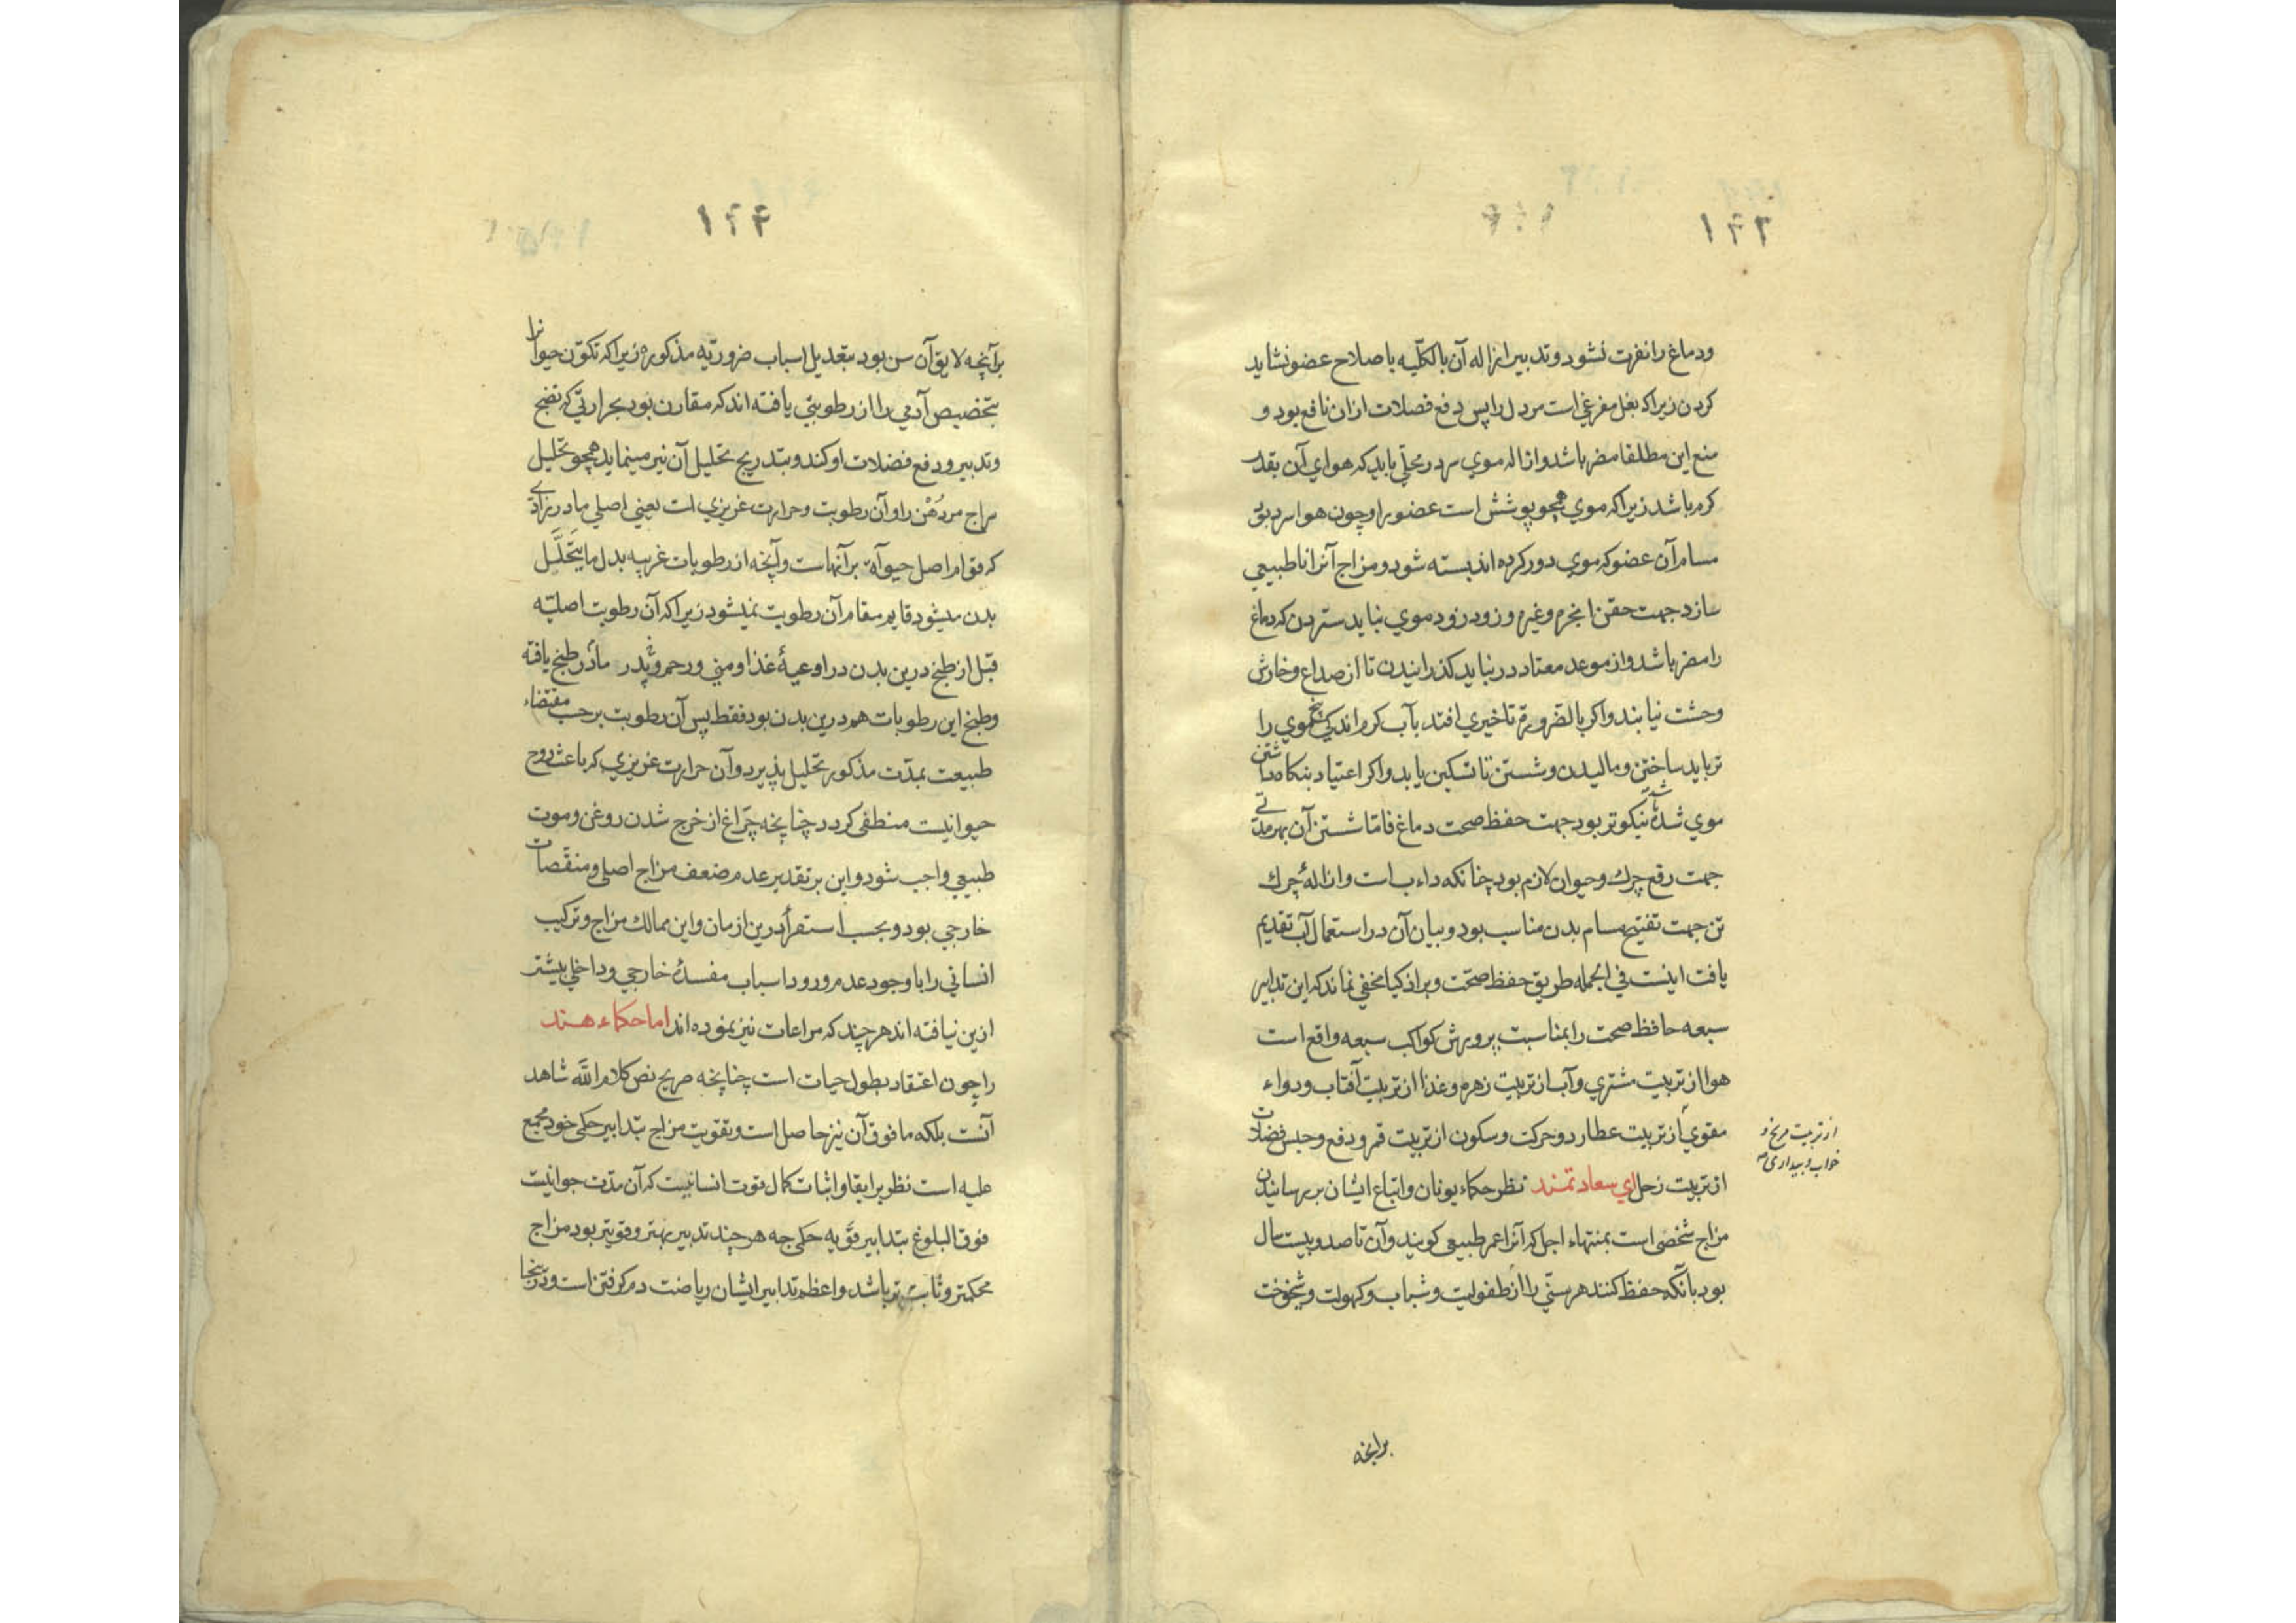 ودماغ را نفرت نشود و تدبیر ازاله آن بالکلّیه باصلاح عضو نشاید
کردن زیرا که بغل مفرغی است مر دل را پس دفع فضلات ازان نافع بود و
منع این مطلقا مضر باشد وازاله موی سر در محلّی باید که هوای آن بقدر
کرم باشد زیرا که موی همچو پوشش است عضو را وچون هوا سرد بود
مسام آن عضو که موی دور کرده اند بسته شود و مزاج آنرا ناطبیعی
سازد جهت حقن ابخره وغیره و زود زود موی نباید ستردن که دماغ
را مضر باشد واز موعد معتاد در نباید کذرانیدن تا از صداع و خارش
وحشت نیابند واکر بالضّرورة تاخیری افتد بآب کرم اندکی بیخ موی را
تر باید ساختن و مالیدن و شستن تا تسکین یابد واکر اعتیاد بنکاه داشتن
موی شده باشد نیکوتر بود جهت حفظ صحت دماغ فامّا شستن آن بهر مدتی
جهت رفع چرك وحیوان لازم بود چنانکه داءب است وازالهٔ چرك
تن جهت تفتیح مسام بدن مناسب بود و بیان آن در استعمال آب تقدیم
یافت اینست فی الجمله طریق حفظ صحّت وبر اذکیا مخفی نماند که این تدابیر
سبعه حافظ صحت را بمناسبت پرورش کواکب سبعه واقع است
هوا از تربیت مشتری وآب از تربیت زهره وغذا از تربیت آفتاب ودواء
مقوی از تربیت عطارد وحرکت وسکون از تربیت قمر و دفع وحبس فضلات
از تربیت مریخ و
خواب و بیداری
از تربیت زحل ای سعادتمند نظر حکماء یونان واتباع ایشان بر رسانیدن
مزاج شخصی است بمنتهاء اجل که آنرا عمر طبیعی کویند وآن تا صد وبیست سال
بود بآنکه حفظ کنند هر سنّی را از طفولیت وشباب وکهولت وشیخوخت
برآنچه
۱۴۴
برآنچه لایق آن سن بود بتعدیل اسباب ضروریّه مذکوره زیرا که تکوّن حیوانرا
بتخصیص آدمی را از رطوبتی یافته اند که مقارن بود بحرارتی که نضج
وتدبیر ودفع فضلات او کند وبتدریج تحلیل آن نیز مینماید همچو تحلیل
سراج مر دُهْن را وآن رطوبت وحرارت غریزی است یعنی اصلی مادرزادی
که قوام اصل حیوة بر آنهاست وآنچه از رطوبات غریبه بدل ما یتحلّل
بدن میشود قایم مقام آن رطوبت نمیشود زیرا که آن رطوبت اصلیّه
قبل از طبخ درین بدن در اوعیهٔ غذا ومنی ورحم و پدر مادر طبخ یافته
وطبخ این رطوبات هم درین بدن بود فقط پس آن رطوبت برحسب مقتضاء
طبیعت بمدّت مذکور تحلیل پذیرد وآن حرارت غریزی که باعث روح
حیوانیست منطفی کردد چنانچه چراغ از خرج شدن روغن وموت
طبیعی واجب شود واین بر تقدیر عدم ضعف مزاج اصلی ومنقصات
خارجی بود وبحسب استقرأ درین ازمان واین ممالك مزاج وترکیب
انسانی را با وجود عدم ورود اسباب مفسدهٔ خارجی وداخلی بیشتر
ازین نیافته اند هر چند که مراعات نیز نموده اند اما حکماء هند
را چون اعتقاد بطول حیات است چنانچه صریح نص کلام اللّه شاهد
آنست بلکه ما فوق آن نیز حاصل است وتقویت مزاج بتدابیر حکمی خود مجمع
علیه است نظر بر ابقا واثبات کمال قوت انسانیست که آن مدّت جوانیست
فوق البلوغ بتدابیر قویه حکمی چه هر چند تدبیر بهتر وقویتر بود مزاج
محکمتر وثابت تر باشد واعظم تدابیر ایشان ریاضت دم کرفتن است ودرینجا